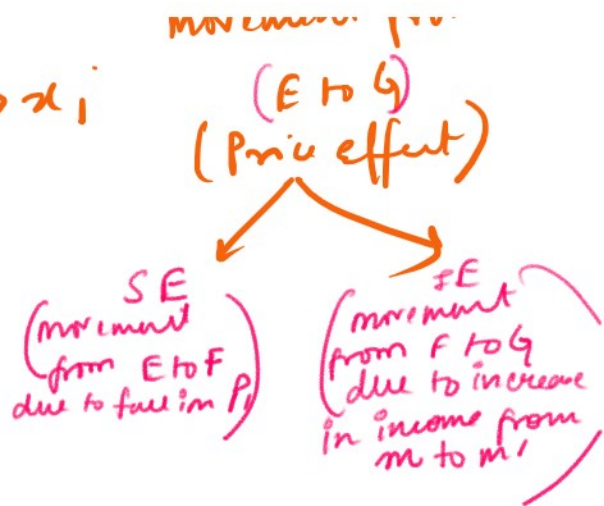 movement from
x1
(E to G)
(Price effect)
SE
(movement
from E to F
due to fall in P1)
IE
(movement
from F to G
due to increase
in income from
m to m')